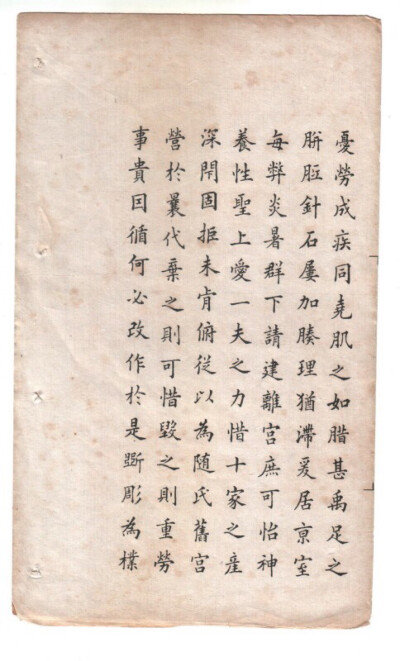 憂勞成疾同堯肌之如腊甚禹足之
胼胝針石屢加腠理猶滯爰居亰室
每弊炎暑群下請建離宮庶可怡神
養性聖上愛一夫之力惜十家之產
深閇固拒未肯俯從以為随氏舊宮
營於曩代棄之則可惜毀之則重勞
事貴因循何必改作於是斲彫為樸